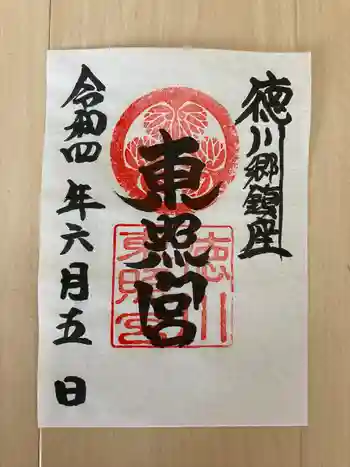 徳川郷鎮座
東照宮
徳川
東照宮
令和四年六月五日